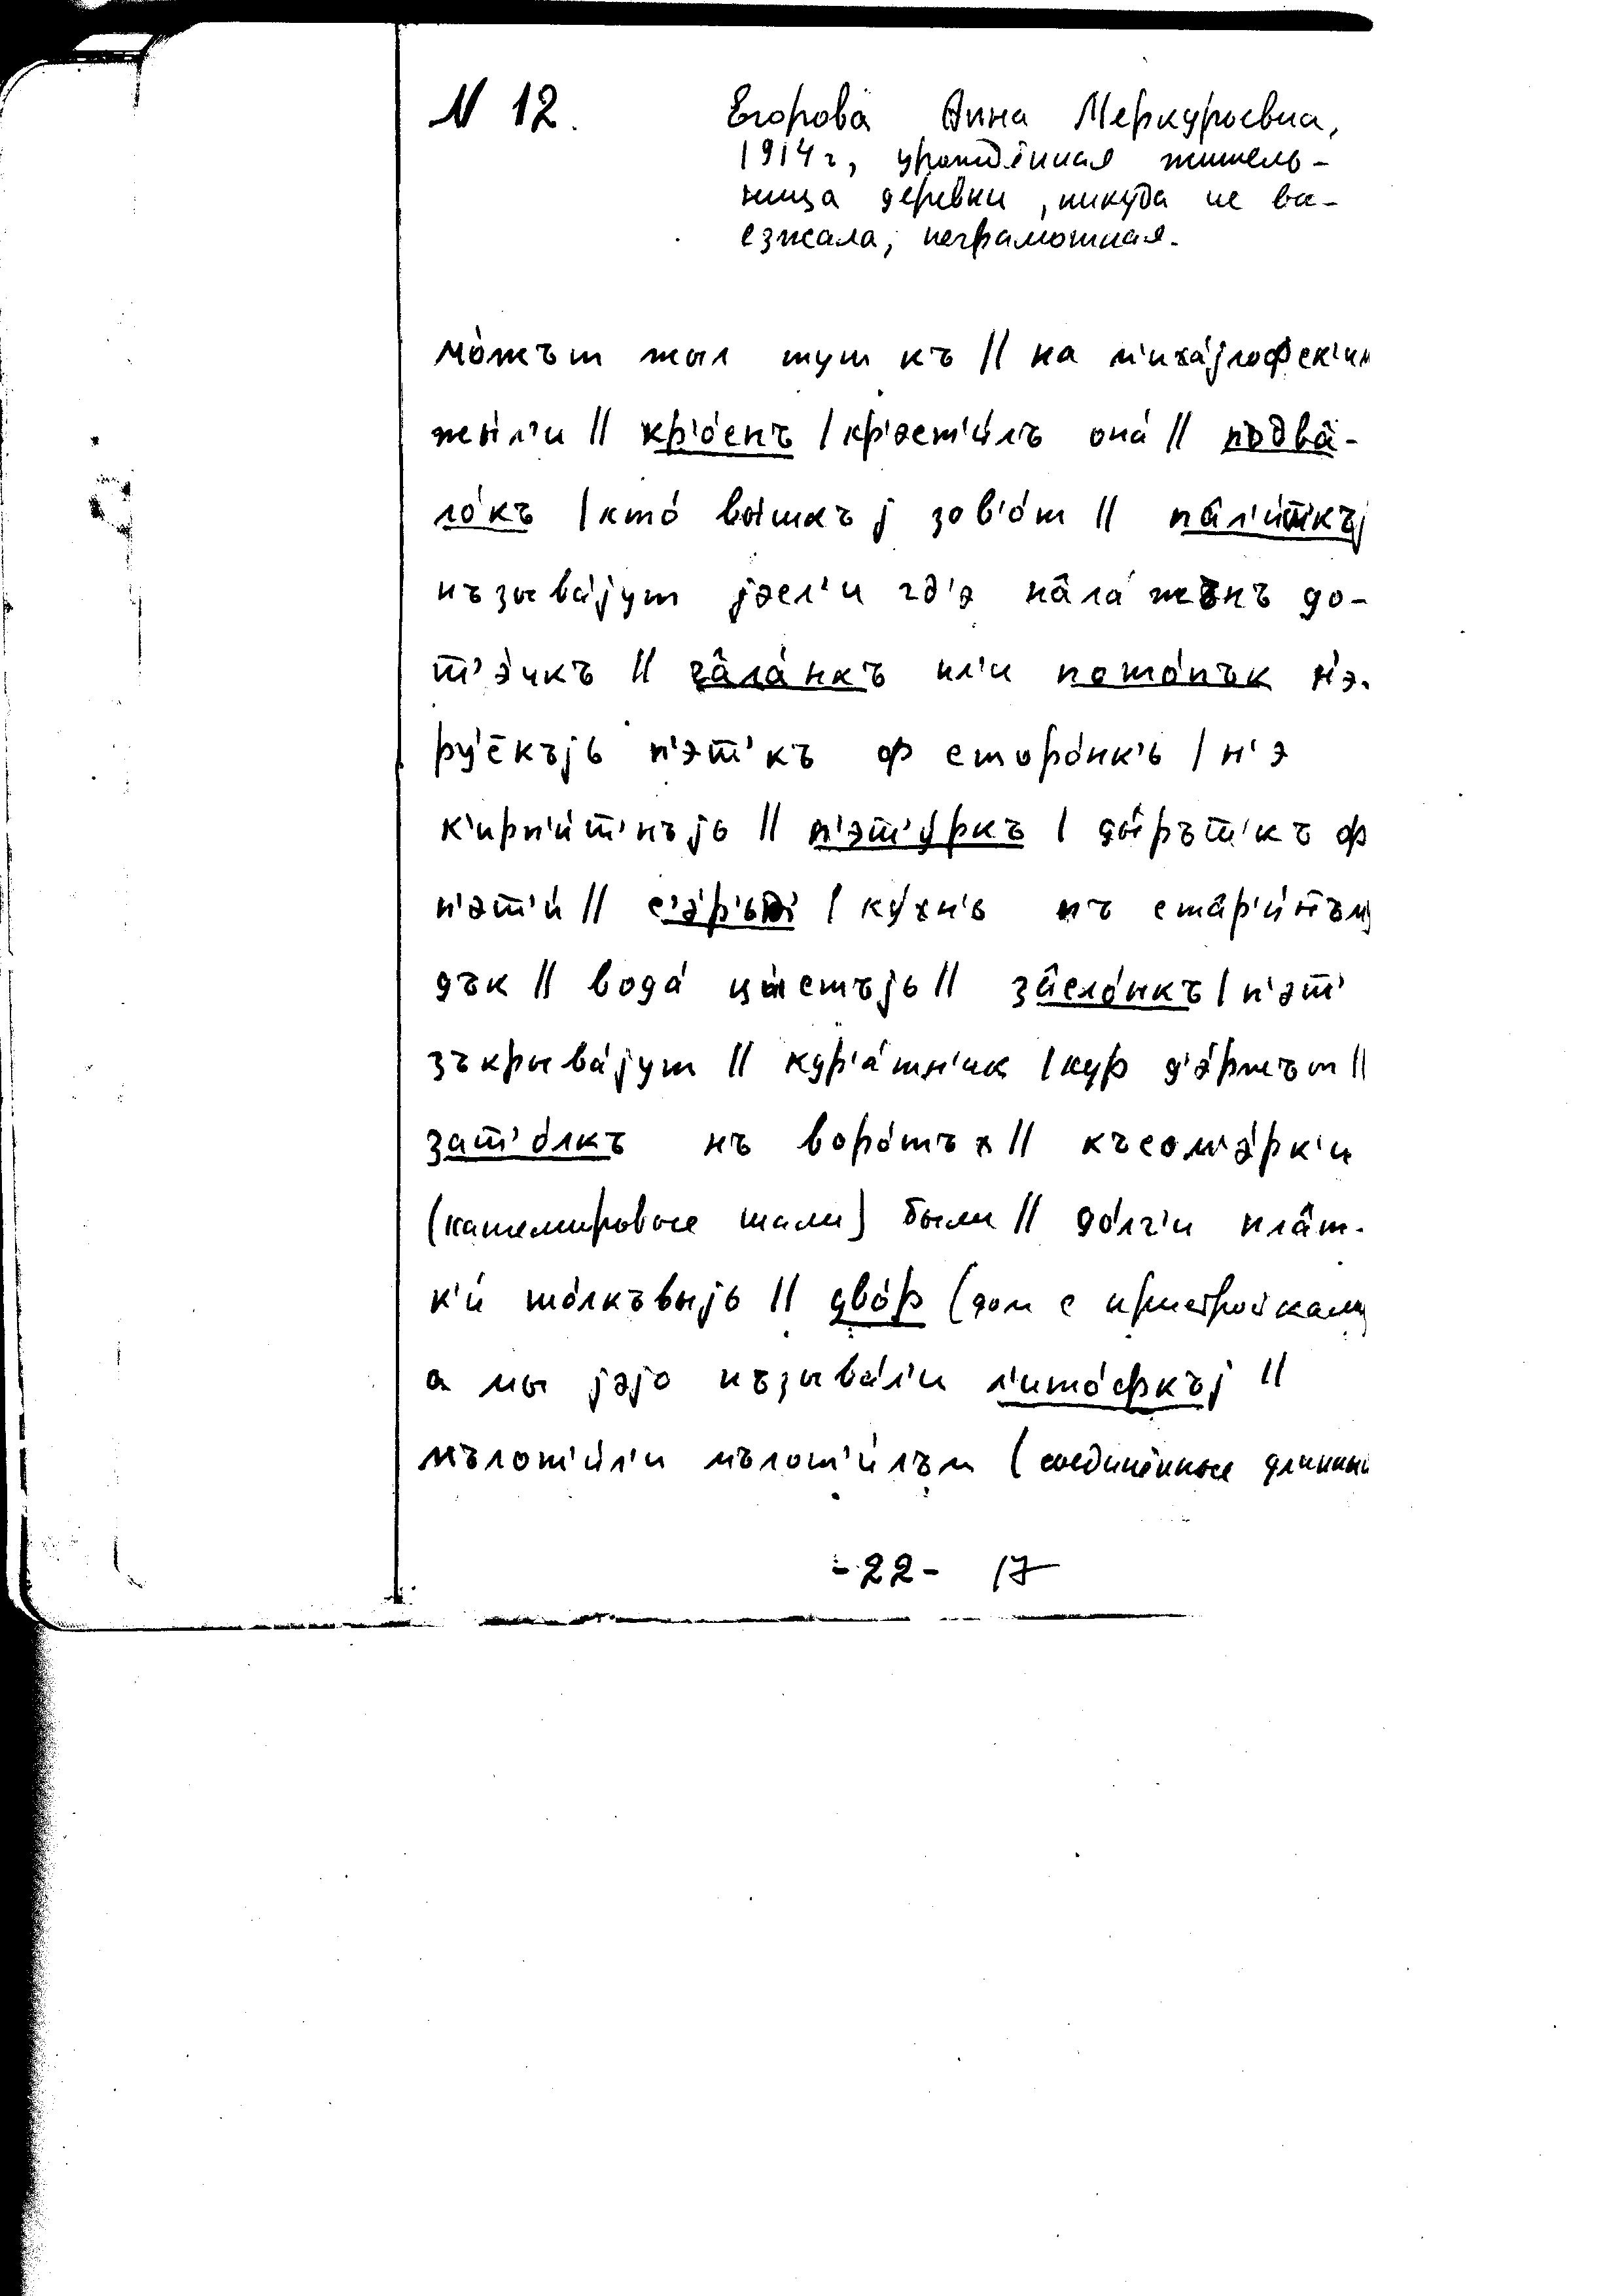 N 12. Егорова Анна Меркурьевна,
1914 г, урождённая житель-
ница деревни, никуда не вы-
езжала, неграмотная.
мо́жът жыл тут къ // на м'иха́jлофск'им
жы́л'и // кр'о́снъ / кр'эст'и́лъ она́ // подвâ-
ло́къ / кто́ вы́шкъj зов'о́т // пâл'и́т̄'къj
нъзыва́jут jэсл'и гд'э нâла́жънъ до-
т̄'э́чкъ // гâла́нкъ ил'и пото́пък н'э.
ру́с̄къjь п'эт̄'къ ф сторо́нк'ь / н'э
к'ирп'и́т̄'нъjь // п'эт̄'у́ркъ / ды́рът̄'къ ф
п'эт̄'и́ // с'э́р'ьт̄' / ку́хн'ь пъ стâр'и́нъму
дък // вода́ цы́стъjь // зâсло́нкъ / п'эт̄'
зъкрыва́jут // кур'а́тн'ик / кур д'э́ржът //
зат̄'о́лкъ нъ воро́тъх // късом'э́рк'и
(кашемировые шали) были // до́лг'и плâт-
к'и́ шо́лкъвыjь // дво́р (дом с пристройками
а мы jэjо нъзыва́л'и л'ито́фкъj //
мълот'и́л'и мълот'и́лъм (соединённые длинный
-22- 17